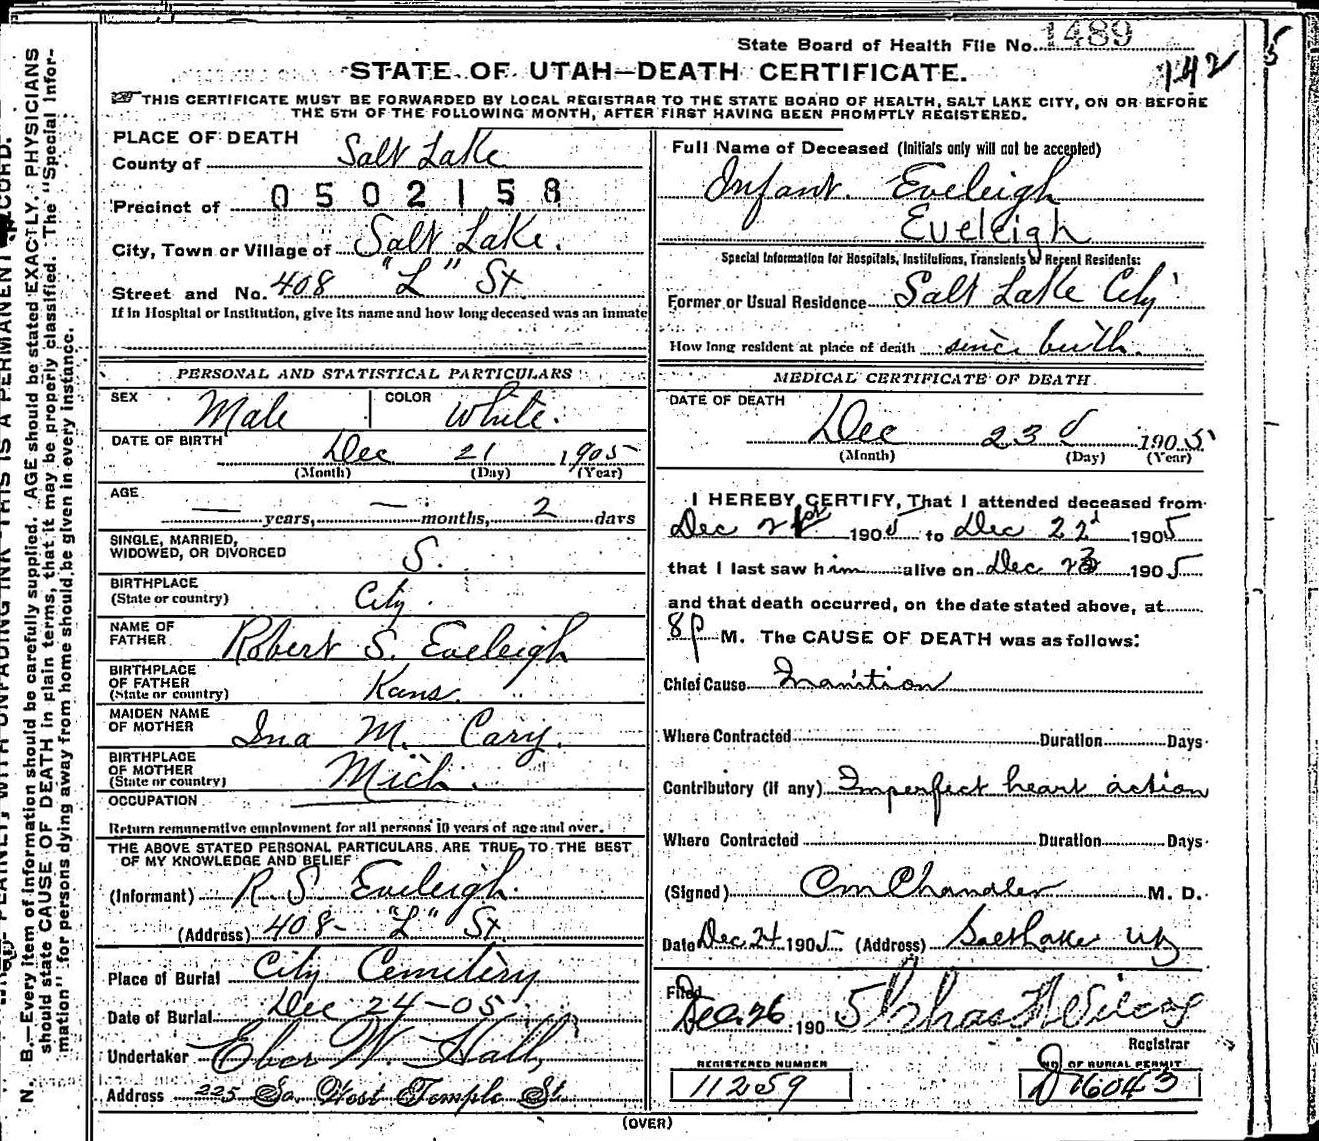 State Board of Health File No. 1489
142
5
STATE OF UTAH—DEATH CERTIFICATE.
THIS CERTIFICATE MUST BE FORWARDED BY LOCAL REGISTRAR TO THE STATE BOARD OF HEALTH, SALT LAKE CITY, ON OR BEFORE
THE 5TH OF THE FOLLOWING MONTH, AFTER FIRST HAVING BEEN PROMPTLY REGISTERED.
PLACE OF DEATH
County of Salt Lake
0502158
Precinct of
City, Town or Village of Salt Lake.
Street and No. 408 "L" St
If in Hospital or Institution, give its name and how long deceased was an inmate
PERSONAL AND STATISTICAL PARTICULARS
SEX Male COLOR White.
DATE OF BIRTH Dec 21 1905
(Month) (Day) (Year)
AGE — years, — months, 2 days
SINGLE, MARRIED,
WIDOWED, OR DIVORCED S.
BIRTHPLACE
(State or country) City.
NAME OF
FATHER Robert S. Eveleigh
BIRTHPLACE
OF FATHER
(State or country) Kans.
MAIDEN NAME
OF MOTHER Ina M. Cary.
BIRTHPLACE
OF MOTHER
(State or country) Mich.
OCCUPATION
Return remunerative employment for all persons 10 years of age and over.
THE ABOVE STATED PERSONAL PARTICULARS ARE TRUE TO THE BEST
OF MY KNOWLEDGE AND BELIEF
(Informant) R. S. Eveleigh.
(Address) 408- "L" St.
Place of Burial City Cemetery
Date of Burial Dec 24-05
Undertaker Eber W. Hall,
Address 225 So. West Temple St.
Full Name of Deceased (Initials only will not be accepted)
Infant. Eveleigh
Eveleigh
Special Information for Hospitals, Institutions, Transients or Recent Residents:
Former or Usual Residence Salt Lake City
How long resident at place of death since birth.
MEDICAL CERTIFICATE OF DEATH
DATE OF DEATH
Dec 23d 1905
(Month) (Day) (Year)
I HEREBY CERTIFY, That I attended deceased from
Dec 21st 1905 to Dec 22d 1905
that I last saw him alive on Dec 23 1905
and that death occurred, on the date stated above, at
8p M. The CAUSE OF DEATH was as follows:
Chief Cause Inanition
Where Contracted Duration Days
Contributory (if any) Imperfect heart action
Where Contracted Duration Days
(Signed) CM Chandler M. D.
Date Dec 24 1905 (Address) Salt Lake
Filed
Dec. 26 1905
Registrar
REGISTERED NUMBER
11259
NO OF BURIAL PERMIT
D 16043
(OVER)
N. B.—Every item of information should be carefully supplied. AGE should be stated EXACTLY. PHYSICIANS
should state CAUSE OF DEATH in plain terms, that it may be properly classified. The "Special Infor-
mation" for persons dying away from home should be given in every instance.
PLAINLY, WITH UNFADING INK—THIS IS A PERMANENT RECORD.